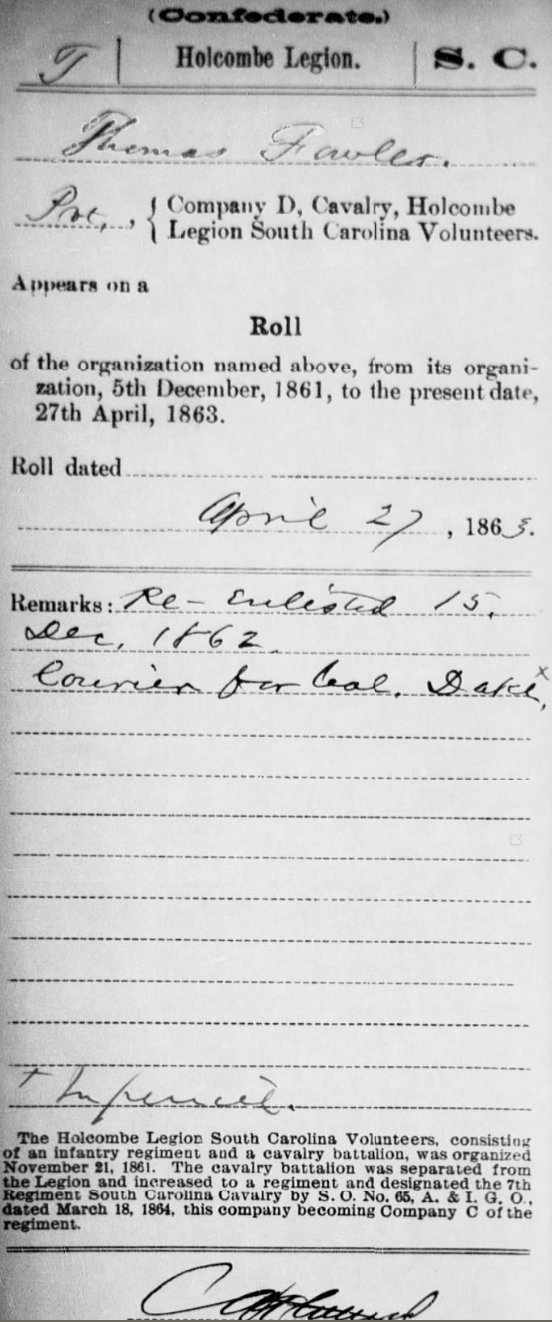 (Confederate.)
F | Holcombe Legion. | S. C.
Thomas Fowler.
Pvt., { Company D, Cavalry, Holcombe
Legion South Carolina Volunteers.
Appears on a
Roll
of the organization named above, from its organi-
zation, 5th December, 1861, to the present date,
27th April, 1863.
Roll dated
April 27, 1863.
Remarks: Re-enlisted 15,
Dec, 1862
Courier for Col. Dake, x
+ In pencil.
The Holcombe Legion South Carolina Volunteers, consisting
of an infantry regiment and a cavalry battalion, was organized
November 21, 1861. The cavalry battalion was separated from
the Legion and increased to a regiment and designated the 7th
Regiment South Carolina Cavalry by S. O. No. 65, A. & I. G. O.,
dated March 18, 1864, this company becoming Company C of the
regiment.